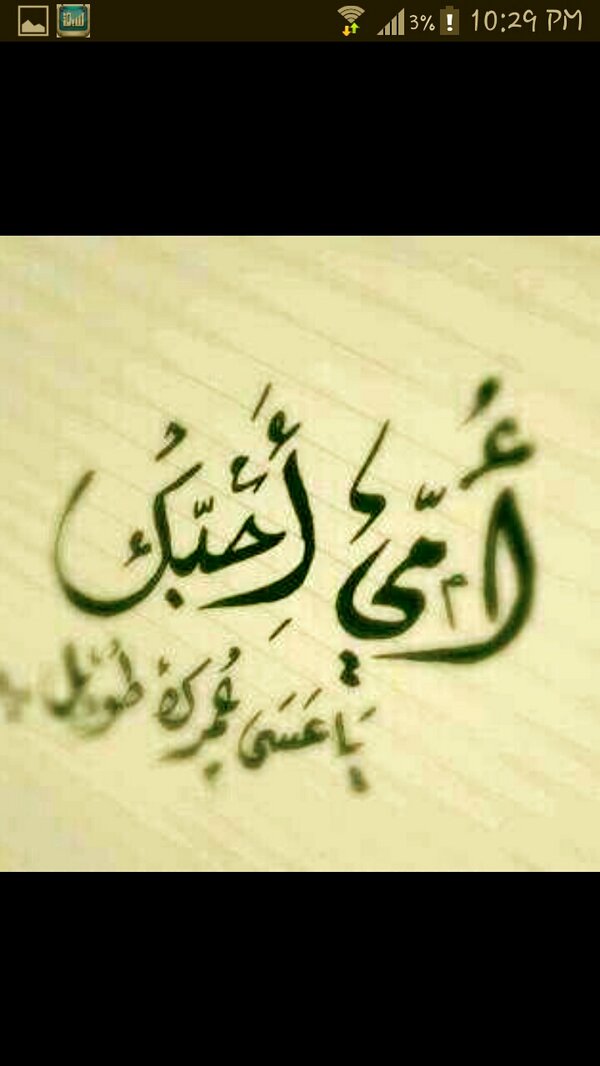 3% 10:29 PM
أُمّي أحبّك
يَا عَسَى عُمرك طويل